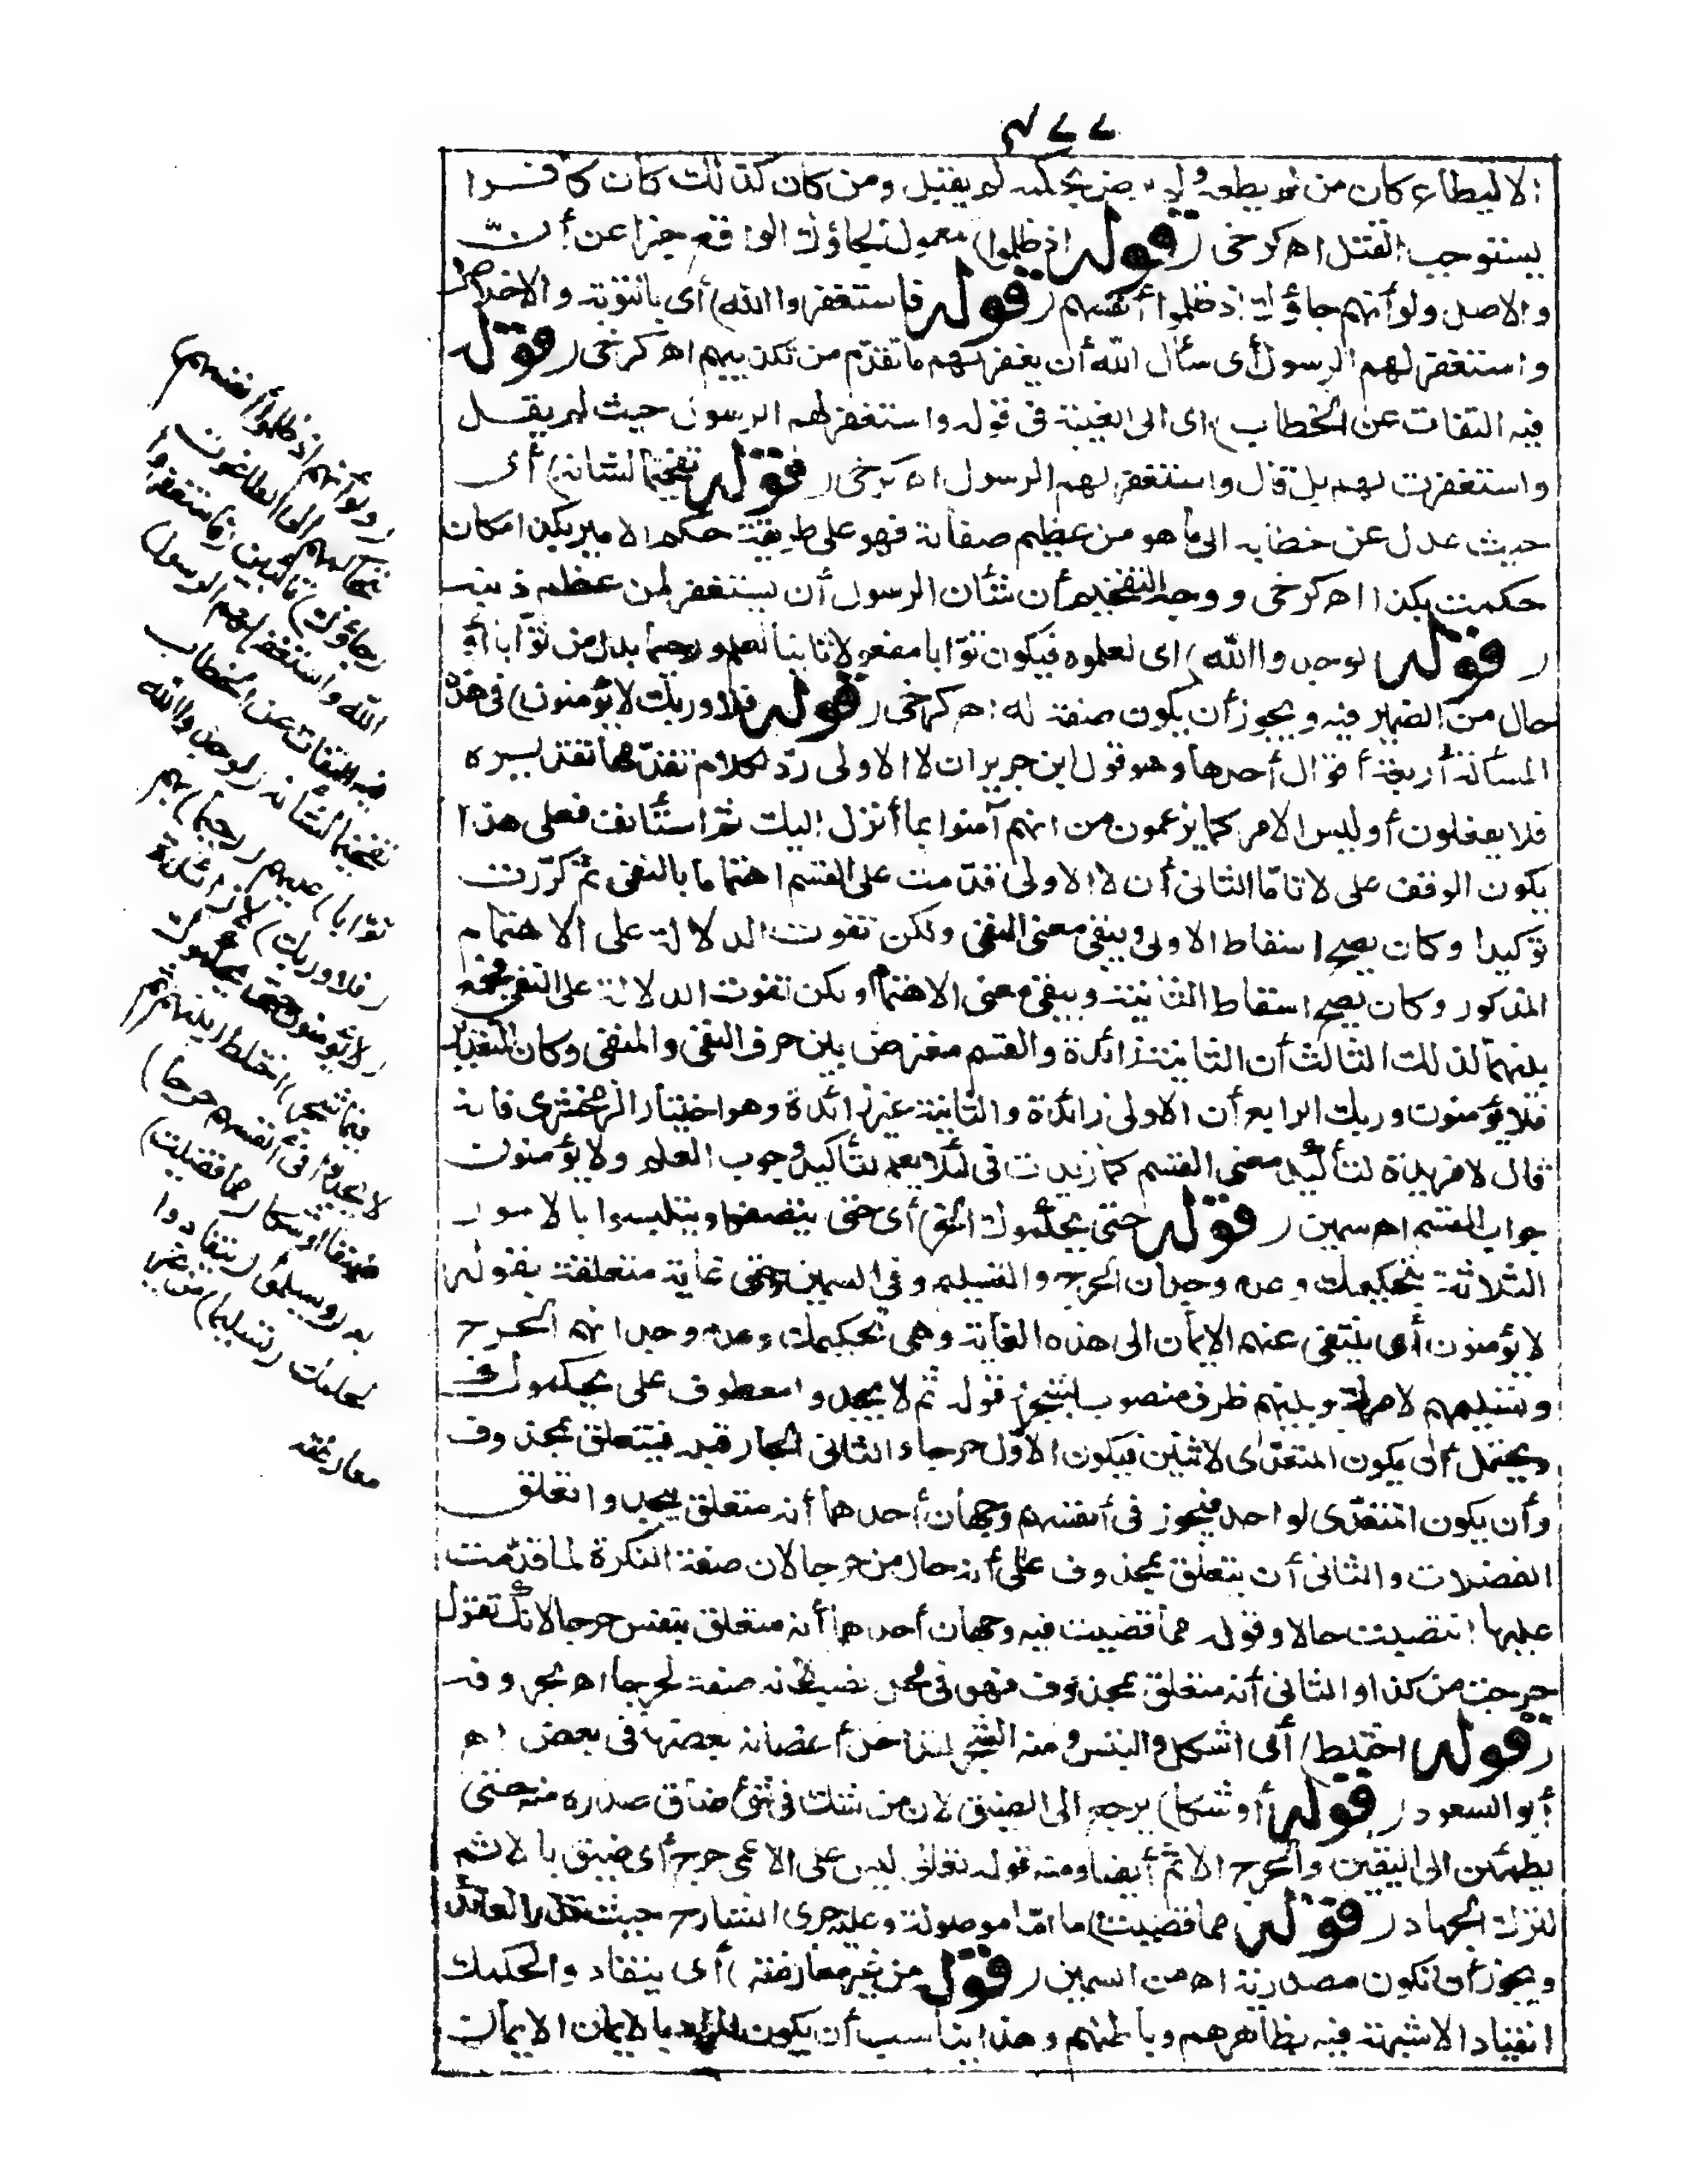 ٤٧٧
الا ليطاع كان من لم يطعه ولم يرض بحكمه لم يقبل ومن كان كذلك كان كافرا
يستوجب القتل اه كرخى (قوله اذ ظلموا) معمول لجاؤك الواقع خبرا عن أنّ
والاصل ولو أنهم جاؤك اذ ظلموا أنفسهم (قوله فاستغفروا الله) أى بالتوبة والاخلاص
واستغفر لهم الرسول أى سأل الله أن يغفر لهم ما تقدّم من تكذيبهم اه كرخى (قوله
فيه التفات عن الخطاب) اى الى الغيبة فى قوله واستغفر لهم الرسول حيث لم يقل
واستغفرت لهم بل قال واستغفر لهم الرسول اه كرخى (قوله تفخيما لشانه) أى
حيث عدل عن خطابه الى ما هو من عظيم صفاته فهو على طريقة حكم الامير بكذا مكان
حكمت بكذا اه كرخى ووجه التفخيم أن شأن الرسول أن يستغفر لمن عظم ذنبه
(قوله لوجدوا الله) اى لعلموه فيكون توّابا مفعولا ثانيا لعلم ورحيما بدل من توّابا أو
حال من الضمير فيه ويجوز أن يكون صفة له اه كرخى (قوله فلا وربك لا يؤمنون) فى هذه
المسألة أربعة أقوال أحدها وهو قول ابن جرير ان لا الاولى ردّ لكلام تقدّمها تقديره
فلا يعقلون أو ليس الامر كما يزعمون من انهم آمنوا بما أنزل اليك ثم استأنف فعلى هذا
يكون الوقف على لا تامّا الثانى أن لا الاولى قدّمت على القسم اهتماما بالنفى ثم كرّرت
توكيدا وكان يصح اسقاط الاولى ويبقى معنى النفى ولكن تفوت الدلالة على الاهتمام
المذكور وكان يصح اسقاط الثانية ويبقى معنى الاهتمام ولكن تفوت الدلالة على النفى فجمع
بينهما لذلك الثالث أن الثانية زائدة والقسم معترض بين حرف النفى والمنفى وكان التقدير
فلا يؤمنون وربك الرابع أن الاولى زائدة والثانية غير زائدة وهو اختيار الزمخشرى فانه
قال لا مزيدة لتأكيد معنى القسم كما زيدت فى لئلا يعلم لتأكيد وجوب العلم ولا يؤمنون
جواب القسم اه سمين (قوله حتى يحكّموك الخ) أى حتى يتصفوا ويتلبسوا بالامور
الثلاثة تحكيمك وعدم وجدان الحرج والتسليم وفى السمين حتى غاية متعلقة بقوله
لا يؤمنون أى ينتفى عنهم الايمان الى هذه الغاية وهى تحكيمك وعدم وجدانهم الحرج
وتسليمهم لامرك وبينهم ظرف منصوب بشجر قوله ثم لا يجدوا معطوف على يحكموك و
يحتمل أن يكون المتعدّى لاثنين فيكون الاوّل حرجا والثانى الجار قبله فيتعلق بمحذوف
وأن يكون المتعدّى لواحد فيجوز فى أنفسهم وجهان أحدهما أنه متعلق بيجدوا تعلق
الفضلات والثانى أن يتعلق بمحذوف على أنه حال من حرجا لان صفة النكرة لما قدّمت
عليها انتصبت حالا وقوله مما قضيت فيه وجهان أحدهما أنه متعلق بنفس حرجا لانك تقول
حرجت من كذا والثانى أنه متعلق بمحذوف فهو فى محل نصب لانه صفة لحرجا اه بحروفه
(قوله اختلط) أى اشكل والتبس ومنه الشجر لتداخل أغصانه بعضها فى بعض اه
أبو السعود (قوله أو شكا) يرجع الى الضيق لان من شك فى شئ ضاق صدره منه حتى
يطمئن الى اليقين والحرج الاثم أيضا ومنه قوله تعالى ليس على الاعمى حرج أى ضيق بالاثم
لترك الجهاد (قوله مما قضيت) ما امّا موصولة وعليه جرى الشارح حيث قدّر العائد
ويجوز أن تكون مصدرية اه من السمين (قوله من غير معارضة) أى ينقادوا لحكمك
انقيادا لا شبهة فيه بظاهرهم وباطنهم وهذا يناسب أن يكون المراد بالايمان الايمان
(ولو أنهم اذ ظلموا أنفسهم)
بتحاكمهم الى الطاغوت
(جاؤك) تائبين (فاستغفروا
الله واستغفر لهم الرسول)
فيه التفات عن الخطاب
تفخيما لشأنه (لوجدوا الله
توّابا) عليهم (رحيما) بهم
(فلا وربك) لا زائدة
(لا يؤمنون حتى يحكموك
فيما شجر) اختلط (بينهم ثم
لا يجدوا فى أنفسهم حرجا)
ضيقا أو شكا (مما قضيت)
به (ويسلموا) ينقادوا
لحكمك (تسليما) من غير
معارضة